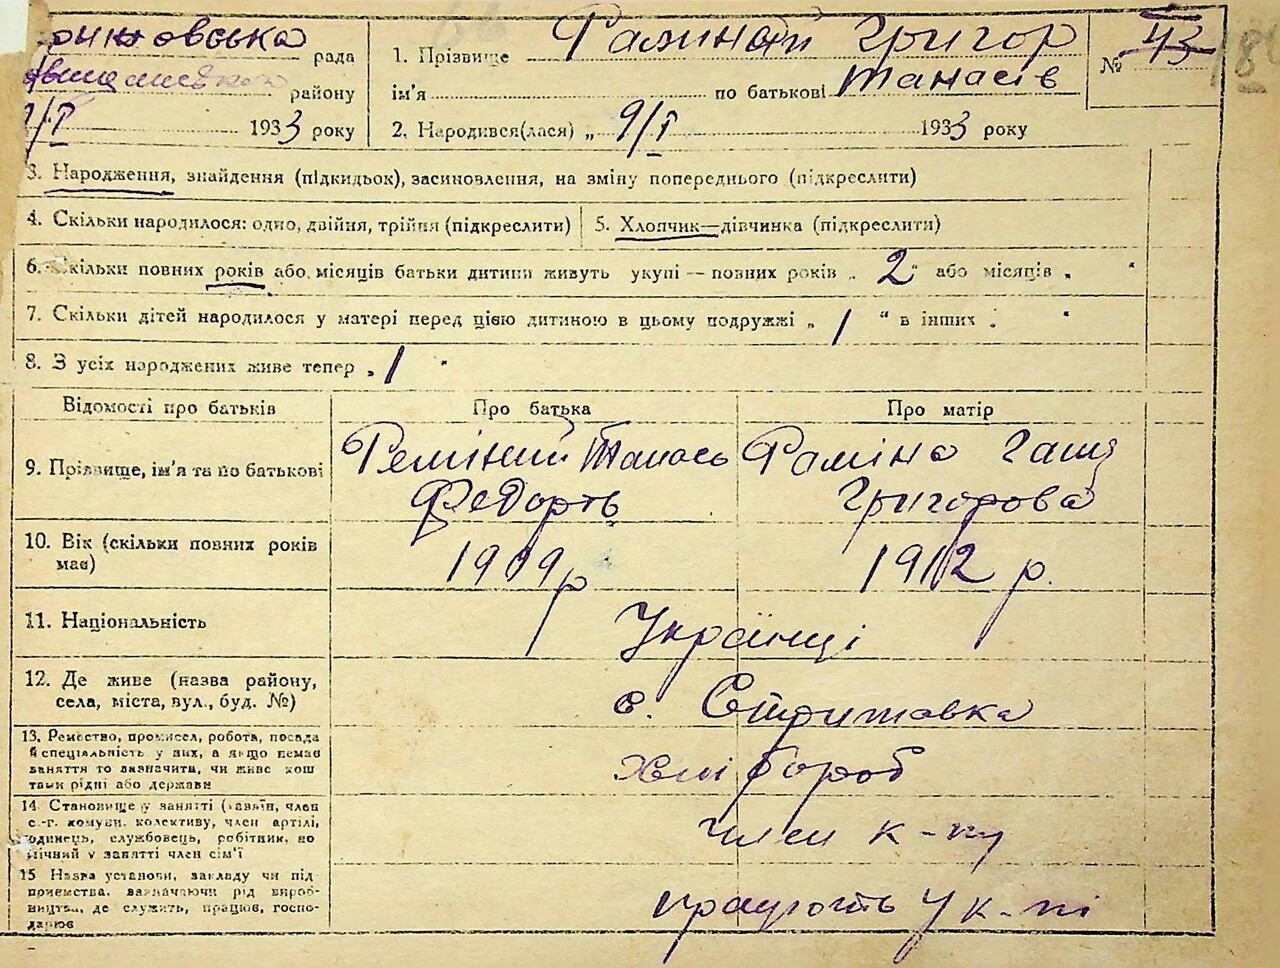 рада
району
9/I 1933 року
1. Прізвище Фаминай Григор
ім'я по батькові Танасів
2. Народився(лася) „ 9/I 1933 року
№ 43
3. Народження, знайдення (підкидьок), засиновлення, на зміну попереднього (підкреслити)
4. Скільки народилося: одно, двійня, трійня (підкреслити)
5. Хлопчик—дівчинка (підкреслити)
6. Скільки повних років або місяців батьки дитини живуть укупі — повних років „ 2 " або місяців „ "
7. Скільки дітей народилося у матері перед цією дитиною в цьому подружжі „ 1 " в інших „ "
8. З усіх народжених живе тепер „ 1 "
Відомості про батьків
Про батька
Про матір
9. Прізвище, ім'я та по батькові
Феміний Танась
Федорть
Фаміна Гаша
Григорова
10. Вік (скільки повних років
має)
1909 р
1912 р.
11. Національність
Українці
12. Де живе (назва району,
села, міста, вул., буд. №)
с. Стрижавка
13. Ремество, промисел, робота, посада
й спеціяльність у них, а якщо немає
заняття то зазначити, чи живе кош
тами рідні або держави
хлібороб
14. Становище у занятті (хазяїн, член
с.-г. комуни, колективу, член артілі,
одинець, службовець, робітник, по
мічний у занятті член сім'ї
член к-пу
15 Назва установи, закладу чи під
приємства, зазначаючи рід вироб-
ництва, де служить, працює, госпо-
дарює
працюють у к-пі